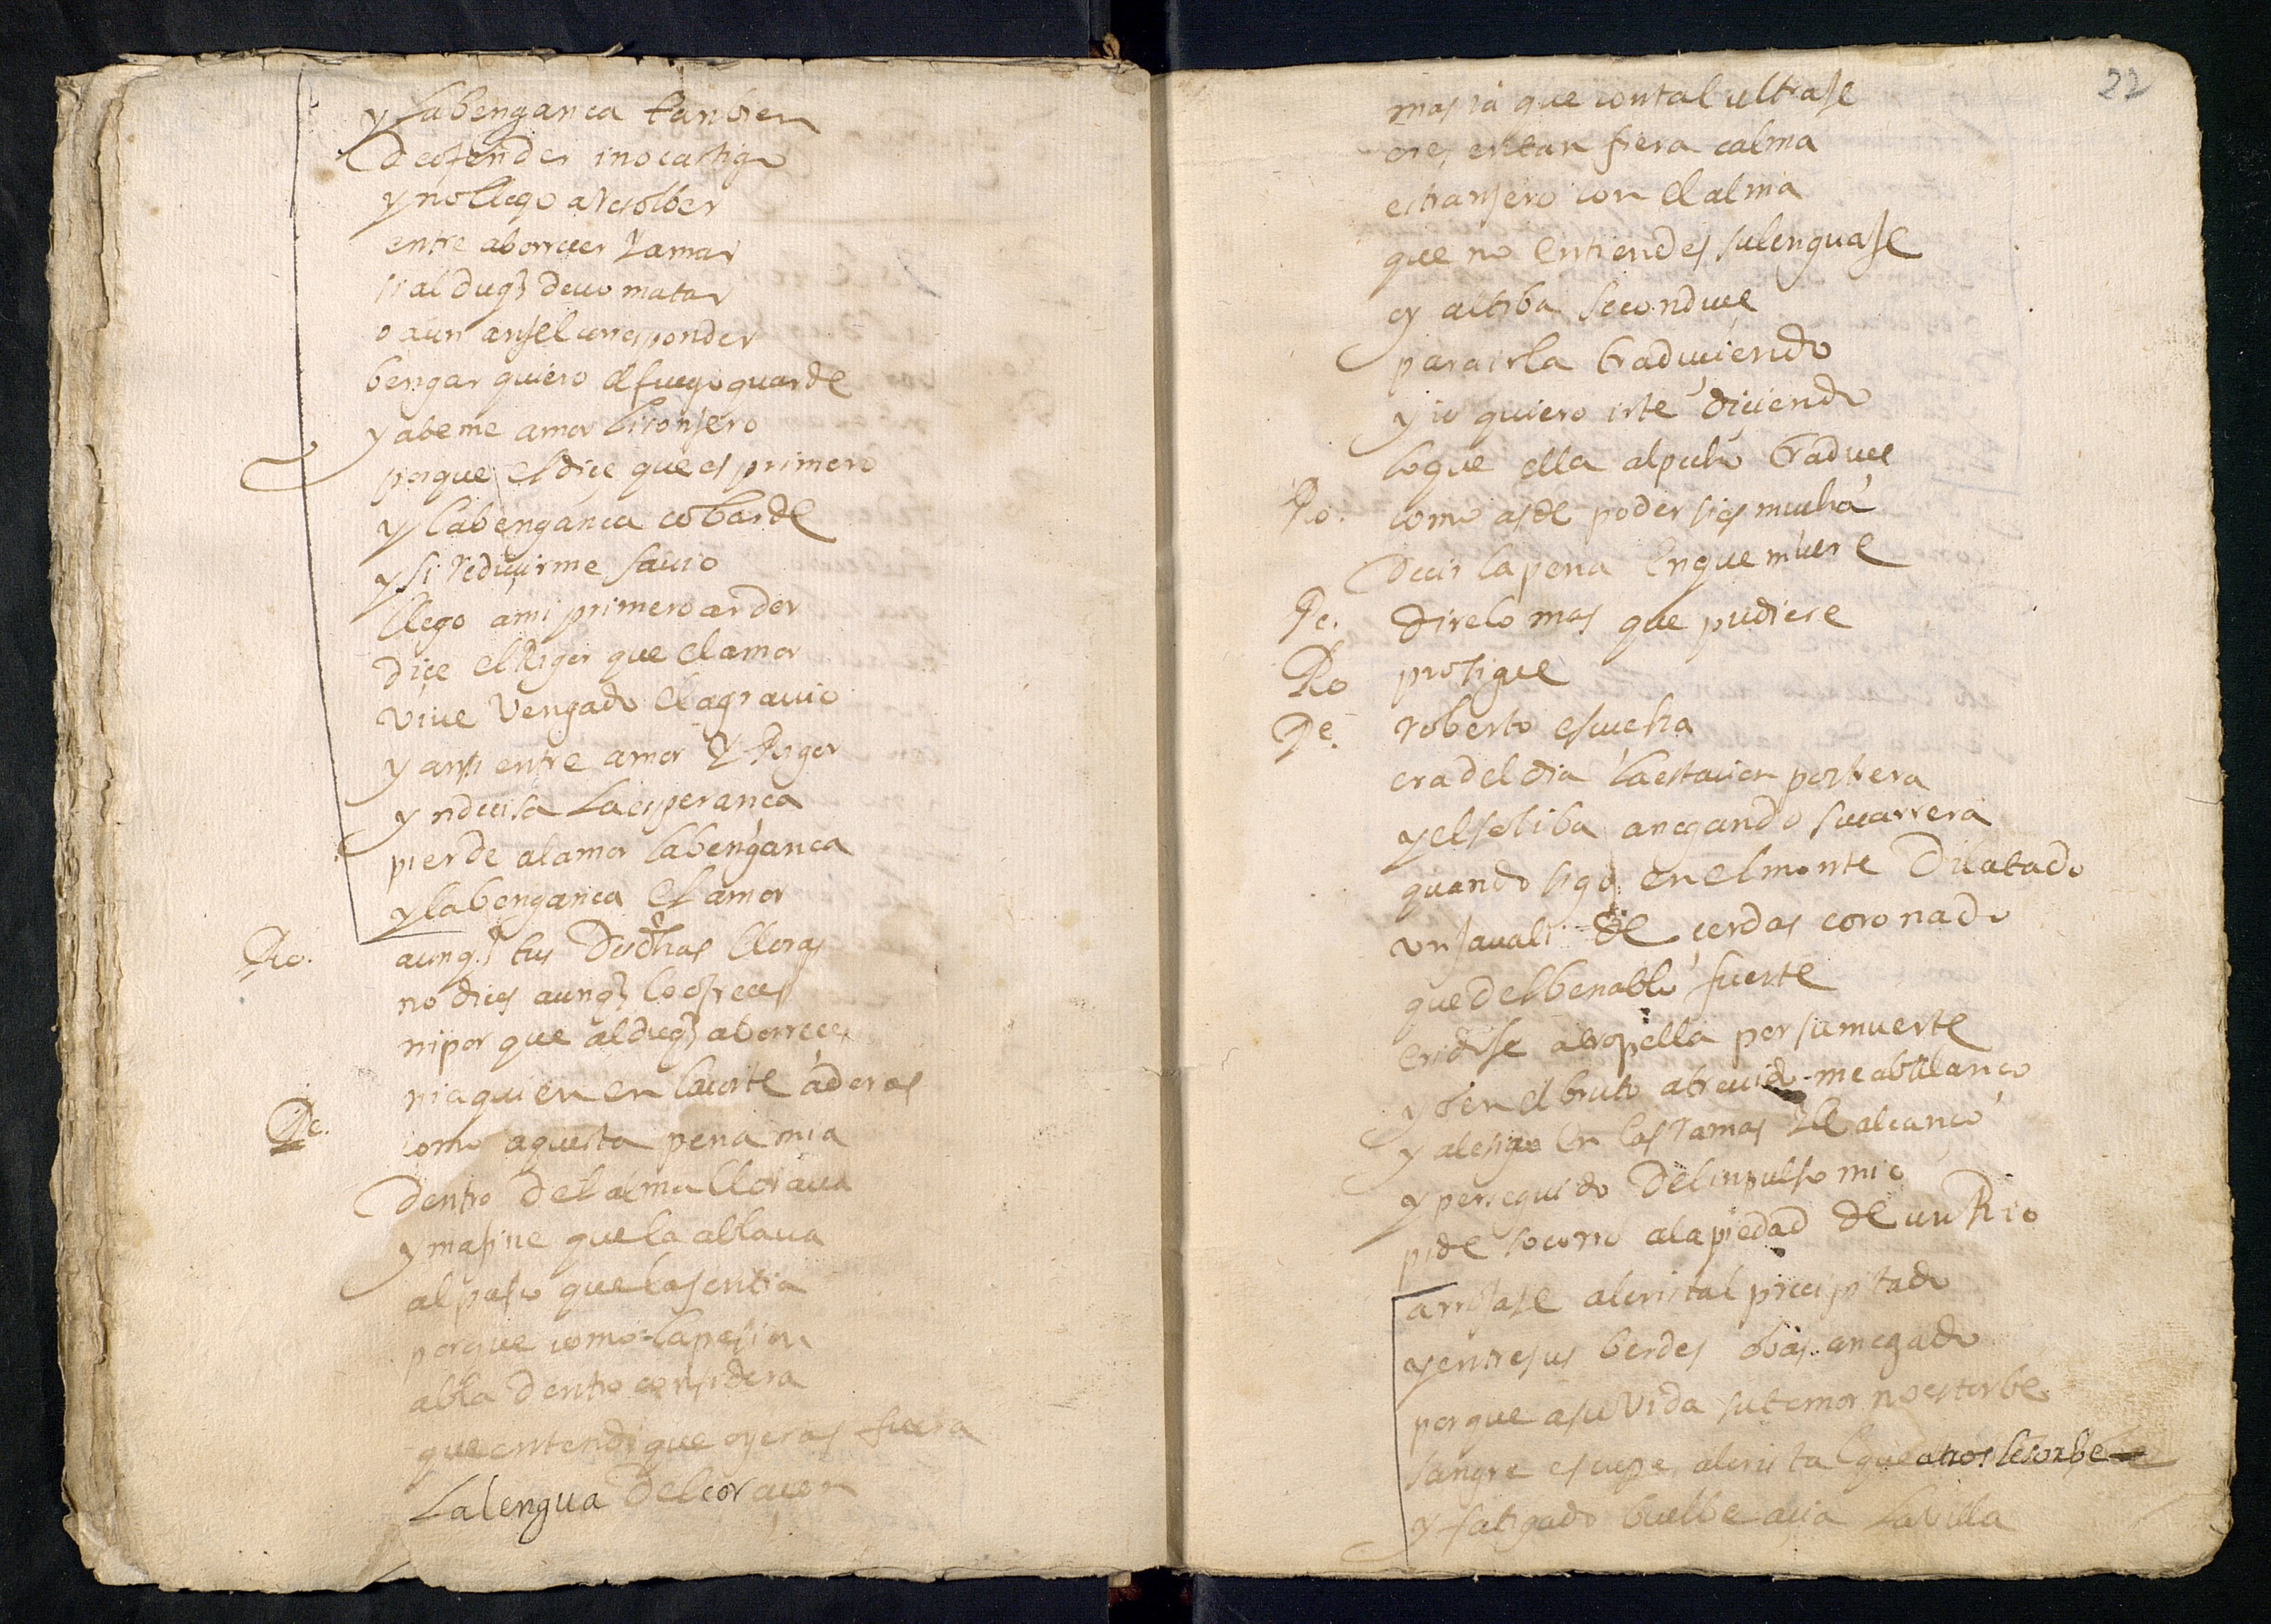 y la benganca tanbien
de ofender ino castigo
y no llego a Resolber
entre aborrecer y amar
si al duq̃ deuo matar
o a un anjel corresponder
bengar quiero el fuego guarde
y abeme amor lisonjero
porque el diçe que es primero
y la benganca cobarde
y si reduçirme sauio
llego a mi primero ardor
diçe el Rigor que el amor
viue vengado el agrauio
y ansi entre amor y Rigor
yndecisa la esperanca
pierde al amor la benganca
y la benganca el amor
Ro. aunq̃ tus desdichas lloras
no diçes aunq̃ lo ofreces
ni por que al duq̃ aborreces
ni a quien en la corte adoras
De. como aquesta pena mia
dentro del alma lloraua
ymajine que la ablaua
al paso que la sentia
porque como la pasion
abla dentro considera
que entendi que oyeras fuera
La lengua del coracon
22
mas ia que con tal ultraje
eres en tan fiera calma
estranjero con el alma
que no entiendes su lenguaje
y altiba se conduce
para irla traduciendo
y io quiero irte diciendo
lo que ella al pecho traduce
Ro. como as de poder si es mucha
decir la pena en que muere
De. direlo mas que pudiere
Ro prosigue
De. roberto escucha
era del dia la estacion postrera
y el sol iba anegando su carrera
quando sigo en el monte dilatado
un jauali de çerdas coronado
que del benablo fuerte
erido se atropella por su muerte
yo en el bruto atreuido me abalanço
y a le sigo en las ramas y le alcanço
y perseguido del inpulso mio
pide socorro a la piedad de un Rio
arrojase al cristal precipitado
y entre sus berdes obas anegado
porque a su vida su temor no estorbe
sangre escupe al cristal que atros le sorbe
y fatigado buelbe açia la villa